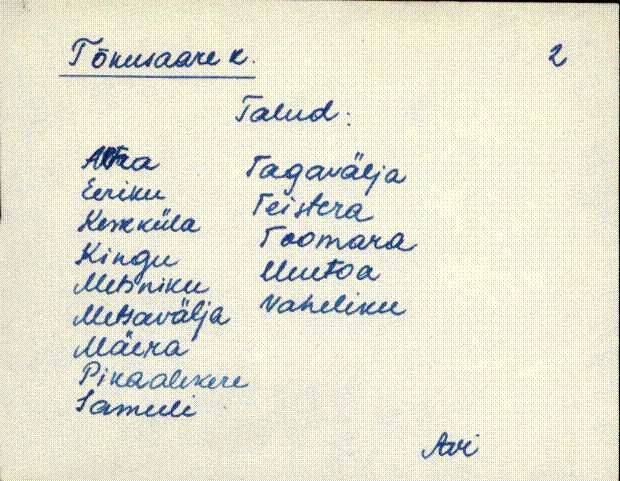 Tõnusaare k.
2
Talud:
Eeriku
Keskküla
Kingu
Metsniku
Metsavälja
Mäera
Samuli
Tagavälja
Teistera
Toomara
Uuetoa
Vaheliku
Avi